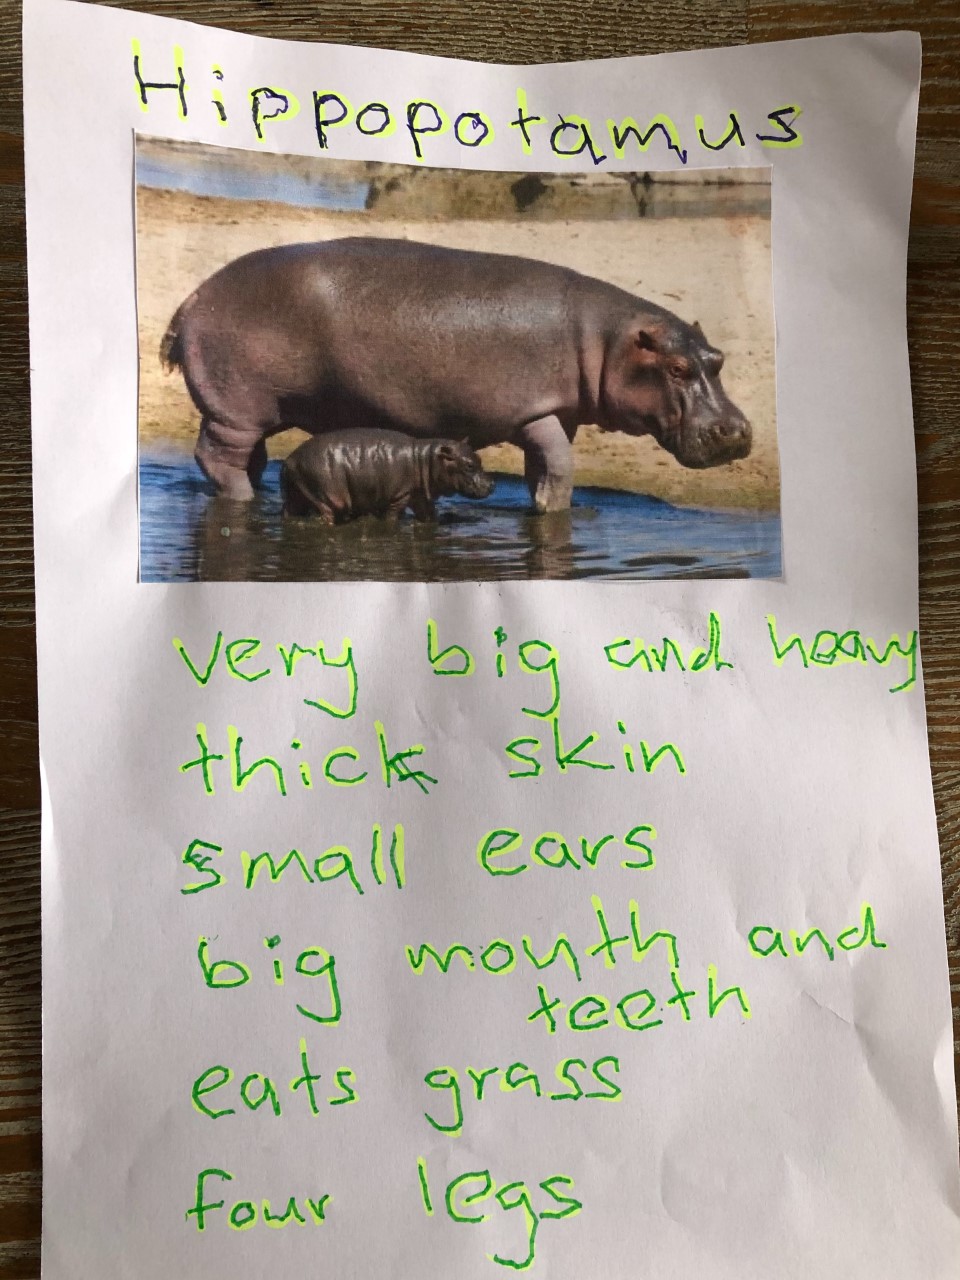 Hippopotamus
very big and heavy
thick skin
small ears
big mouth and
teeth
eats grass
four legs